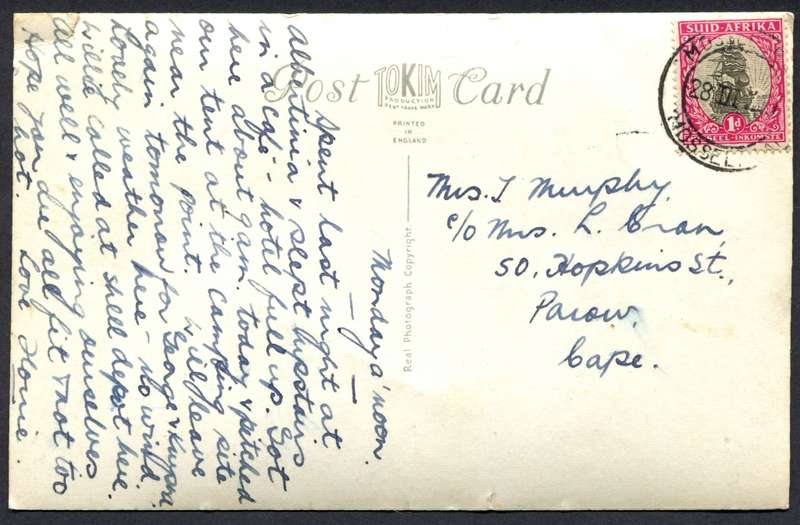 Post Card
TOKIM
PRODUCTION
PRINTED
IN
ENGLAND
Real Photograph Copyright.
SUID-AFRIKA
1d
SEEL-INKOMSTE
28 III
MOSSEL
Monday a'noon.
Spent last night at
Albertinia & slept upstairs
in a cafe - hotel full up. Got
here about 9 am. today & pitched
our tent at the camping site
near the point. Will leave
again tomorrow for George & Knysna
Lovely weather here - no wind.
Willie called at shell depot here.
All well & enjoying ourselves
Hope you are all fit & not too
hot. Love
Mrs. I Murphy,
c/o Mrs. L. Cran,
50, Hopkins St.,
Parow.
Cape.